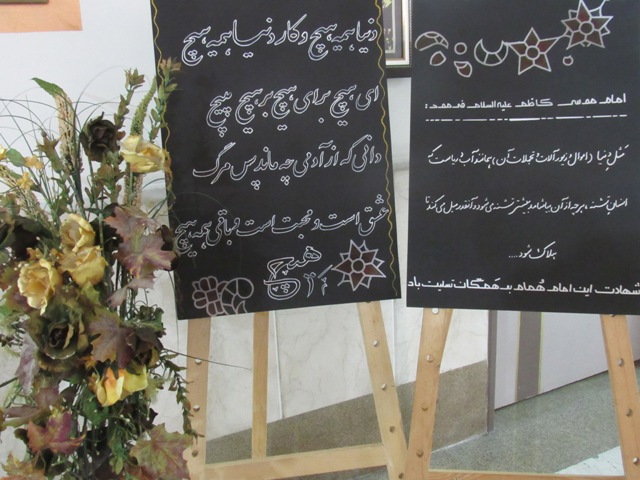 امام موسی کاظم علیه السلام فرمودند :
مَثَل دنیا (اموال و زیورآلات و تجملات آن) همانند آب دریاست که
انسان تشنه، هر چه از آن بیاشامد بیشتر تشنه می شود و آنقدر میل می کند تا
هلاک شود....
شهادت این امام هُمام به هَمگان تسلیت باد
دنیا همه هیچ و کار دنیا همه هیچ
ای هیچ برای هیچ بر هیچ مپیچ
دانی که از آدمی چه ماند پس مرگ
عشق است و محبت است و باقی همه هیچ
هیچ